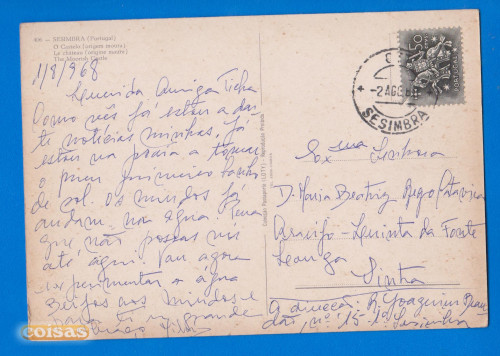 406 — SESIMBRA (Portugal)
O Castelo (origem moura)
Le château (origine maure)
The Moorish Castle
1/8/968
Querida Amiga Ticha
Como vês já estou a dar
te notícias minhas. Já
estou na praia a tomar
o meu primeiro banho
de sol. Os miudos já
andam na agua. Pena
que não possas vir
até aqui. Vou agora
experimentar a água
Beijos aos miudos e
para ti um grande
abraço
50
PORTUGAL
-2 AGO 68
SESIMBRA
Exma Senhora
D. Maria Beatriz Rego
Araujo - Quinta da Fonte
Sintra
A direcção: R. Joaquim
nº 15 1º Sesimbra
coisas